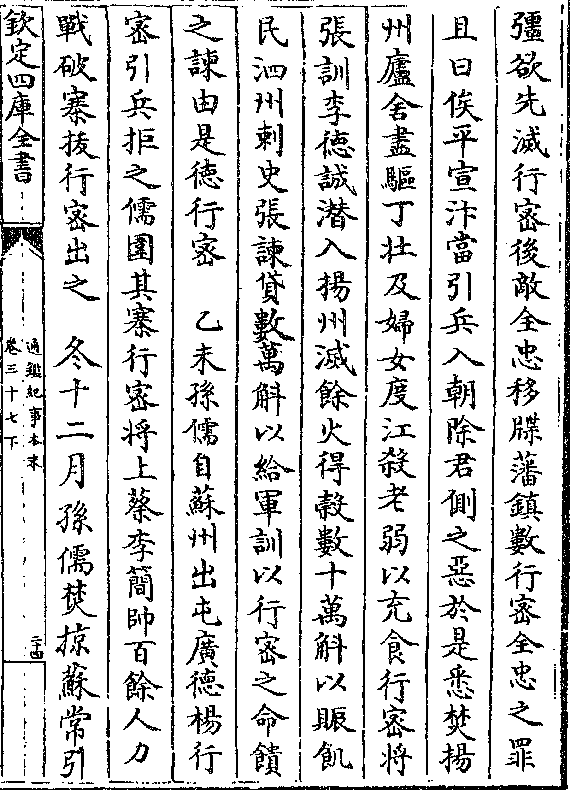 彊欲先滅行密後敵全忠移牒藩鎮數行密全忠之罪
且曰俟平宣汴當引兵入朝除君側之惡於是悉焚揚
州廬舍盡驅丁壮及婦女度江殺老弱以充食行密將
張訓李德誠潜入揚州滅餘火得穀數十萬斛以賑飢
民泗州刺史張諫貸數萬斛以給軍訓以行密之命饋
之諫由是德行密　乙未孫儒自蘇州出屯廣德楊行
密引兵拒之儒圍其寨行密將上蔡李簡帥百餘人力
戰破寨拔行密出之　冬十二月孫儒焚掠蘇常引
欽定四庫全書
通鑑紀事本末
卷三十七下
二十四